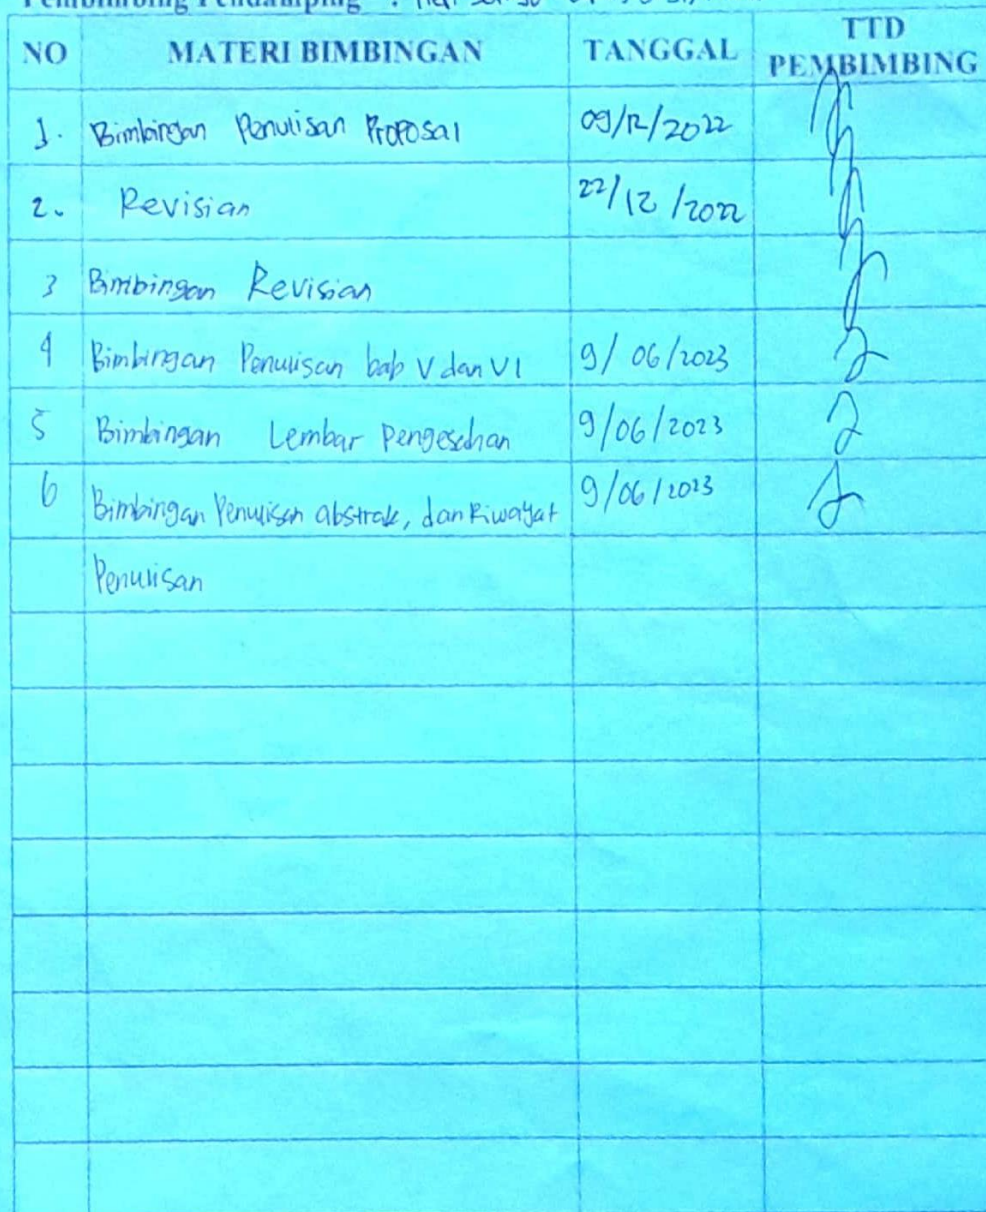 Pembimbing Pendamping :
NO MATERI BIMBINGAN TANGGAL TTD PEMBIMBING
1. Bimbingan Penulisan Proposal 09/12/2022
2. Revisian 22/12/2022
3 Bimbingan Revisian
4 Bimbingan Penulisan bab V dan VI 9/06/2023
5 Bimbingan Lembar Pengesahan 9/06/2023
6 Bimbingan Penulisan abstrak, dan Riwayat 9/06/2023
Penulisan